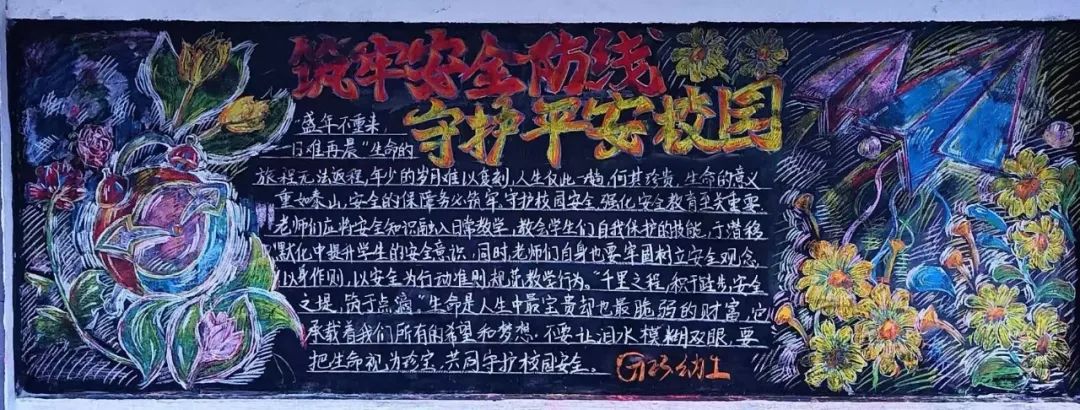 筑牢安全防线
守护平安校园
"盛年不重来,
一日难再晨"生命的
旅程无法返程,年少的岁月难以复刻,人生仅此一趟,何其珍贵,生命的意义
重如泰山,安全的保障务必筑牢,守护校园安全,强化安全教育至关重要
老师们应将安全知识融入日常教学,教会学生们自我保护的技能,于潜移
默化中提升学生的安全意识,同时老师们自身也要牢固树立安全观念,
以身作则,以安全为行动准则,规范教学行为。"千里之程,积于跬步,安全
之堤,筑于点滴"生命是人生中最宝贵却也最脆弱的财富,它
承载着我们所有的希望和梦想.不要让泪水模糊双眼,要
把生命视为珍宝,共同守护校园安全。